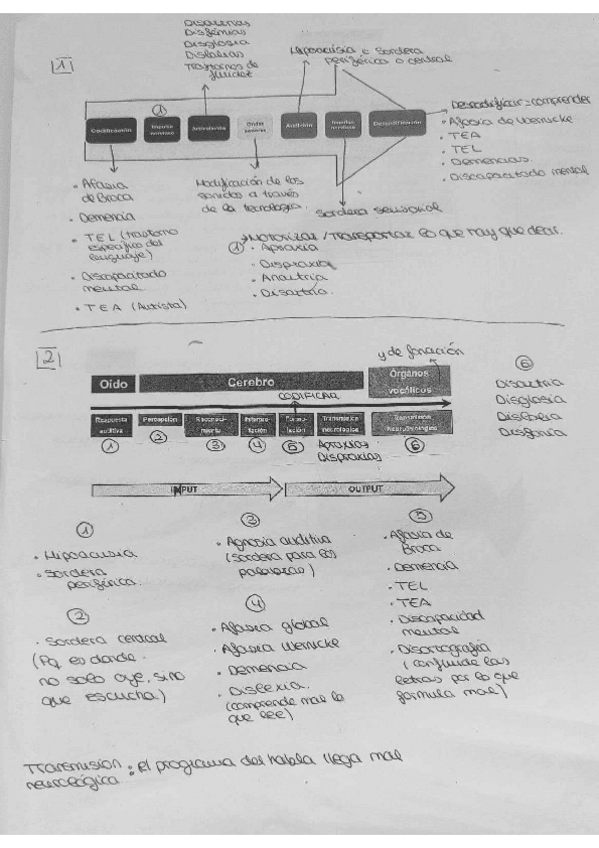 1
Disartrias
Disfemias
Disglosia
Dislalias
Trastornos de
fluidez
Hipoacusia o Sordera
periférica o central
①
Codificación
Impulso nervioso
Articulación
Ondas sonoras
Audición
Impulso nervioso
Descodificación
Descodificar = comprender
• Afasia de Wernicke
• TEA
• TEL
• Demencias.
• Discapacitado mental
• Afasia
de Broca
• Demencia
• TEL (trastorno
específico del
lenguaje)
• Discapacitado
mental
• TEA (Autista)
Modificación de los
sonidos a través
de la tecnología.
Sordera sensorial
Motorizar / Transportar lo que hay que decir.
① • Apraxia
• Dispraxia
• Anartria
• Disartria.
2
y de fonación
Oído
Cerebro
Órganos
vocálicos
CODIFICAR
Respuesta auditiva
Percepción
Formulación
Transmisión neurológica
① ② ③ ④ ⑤ ⑥
Apraxias
Dispraxias
⑥
Disartria
Disglosia
Disfonía
INPUT
OUTPUT
①
• Hipoacusia
• Sordera
periférica
②
• Sordera central
(Pq es donde
no solo oye, sino
que escucha)
③
• Agnosia auditiva
(sordera para las
palabras)
④
• Afasia global
• Afasia Wernicke
• Demencia
• Dislexia.
(comprende mal lo
que lee)
⑤
• Afasia de
Broca
• Demencia
• TEL
• TEA
• Discapacidad
mental
• Disortografía
(confunde las
letras por lo que
formula mal)
Transmisión : El programa del habla llega mal
neurológica